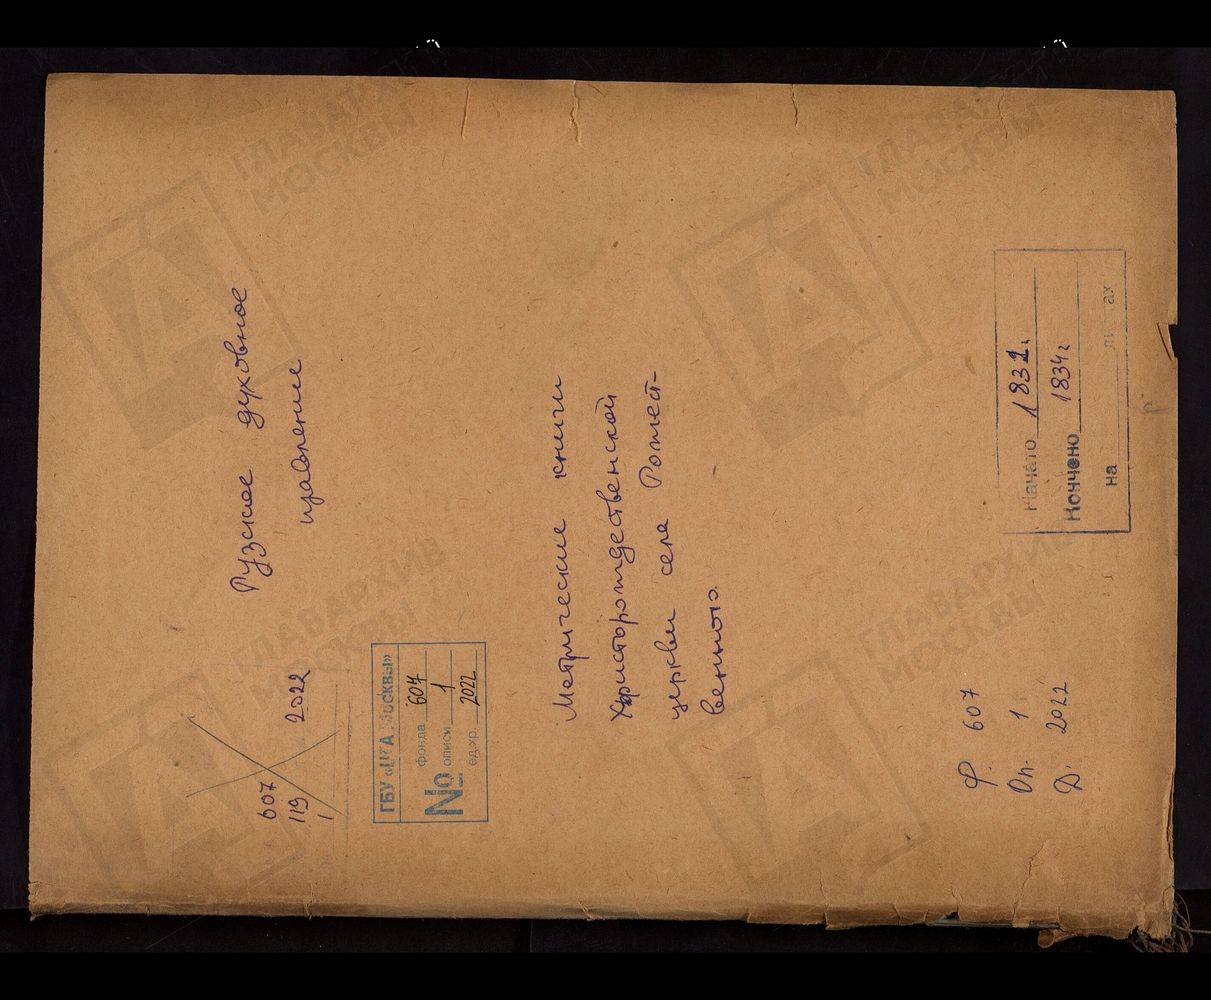 Рузское духовное
правление
607
119
1
2022
ГБУ «ЦГА Москвы»
№
фонда 607
описи 1
ед.хр. 2022
Метрические книги
Христорождественской
церкви села Рождест-
венного.
Начато 1831 г.
Кончено 1834 г
на листах
Ф. 607
Оп. 1
Д. 2022
ГЛАВАРХИВ
МОСКВЫ
ГЛАВАРХИВ
МОСКВЫ
ГЛАВАРХИВ
МОСКВЫ
ГЛАВАРХИВ
МОСКВЫ